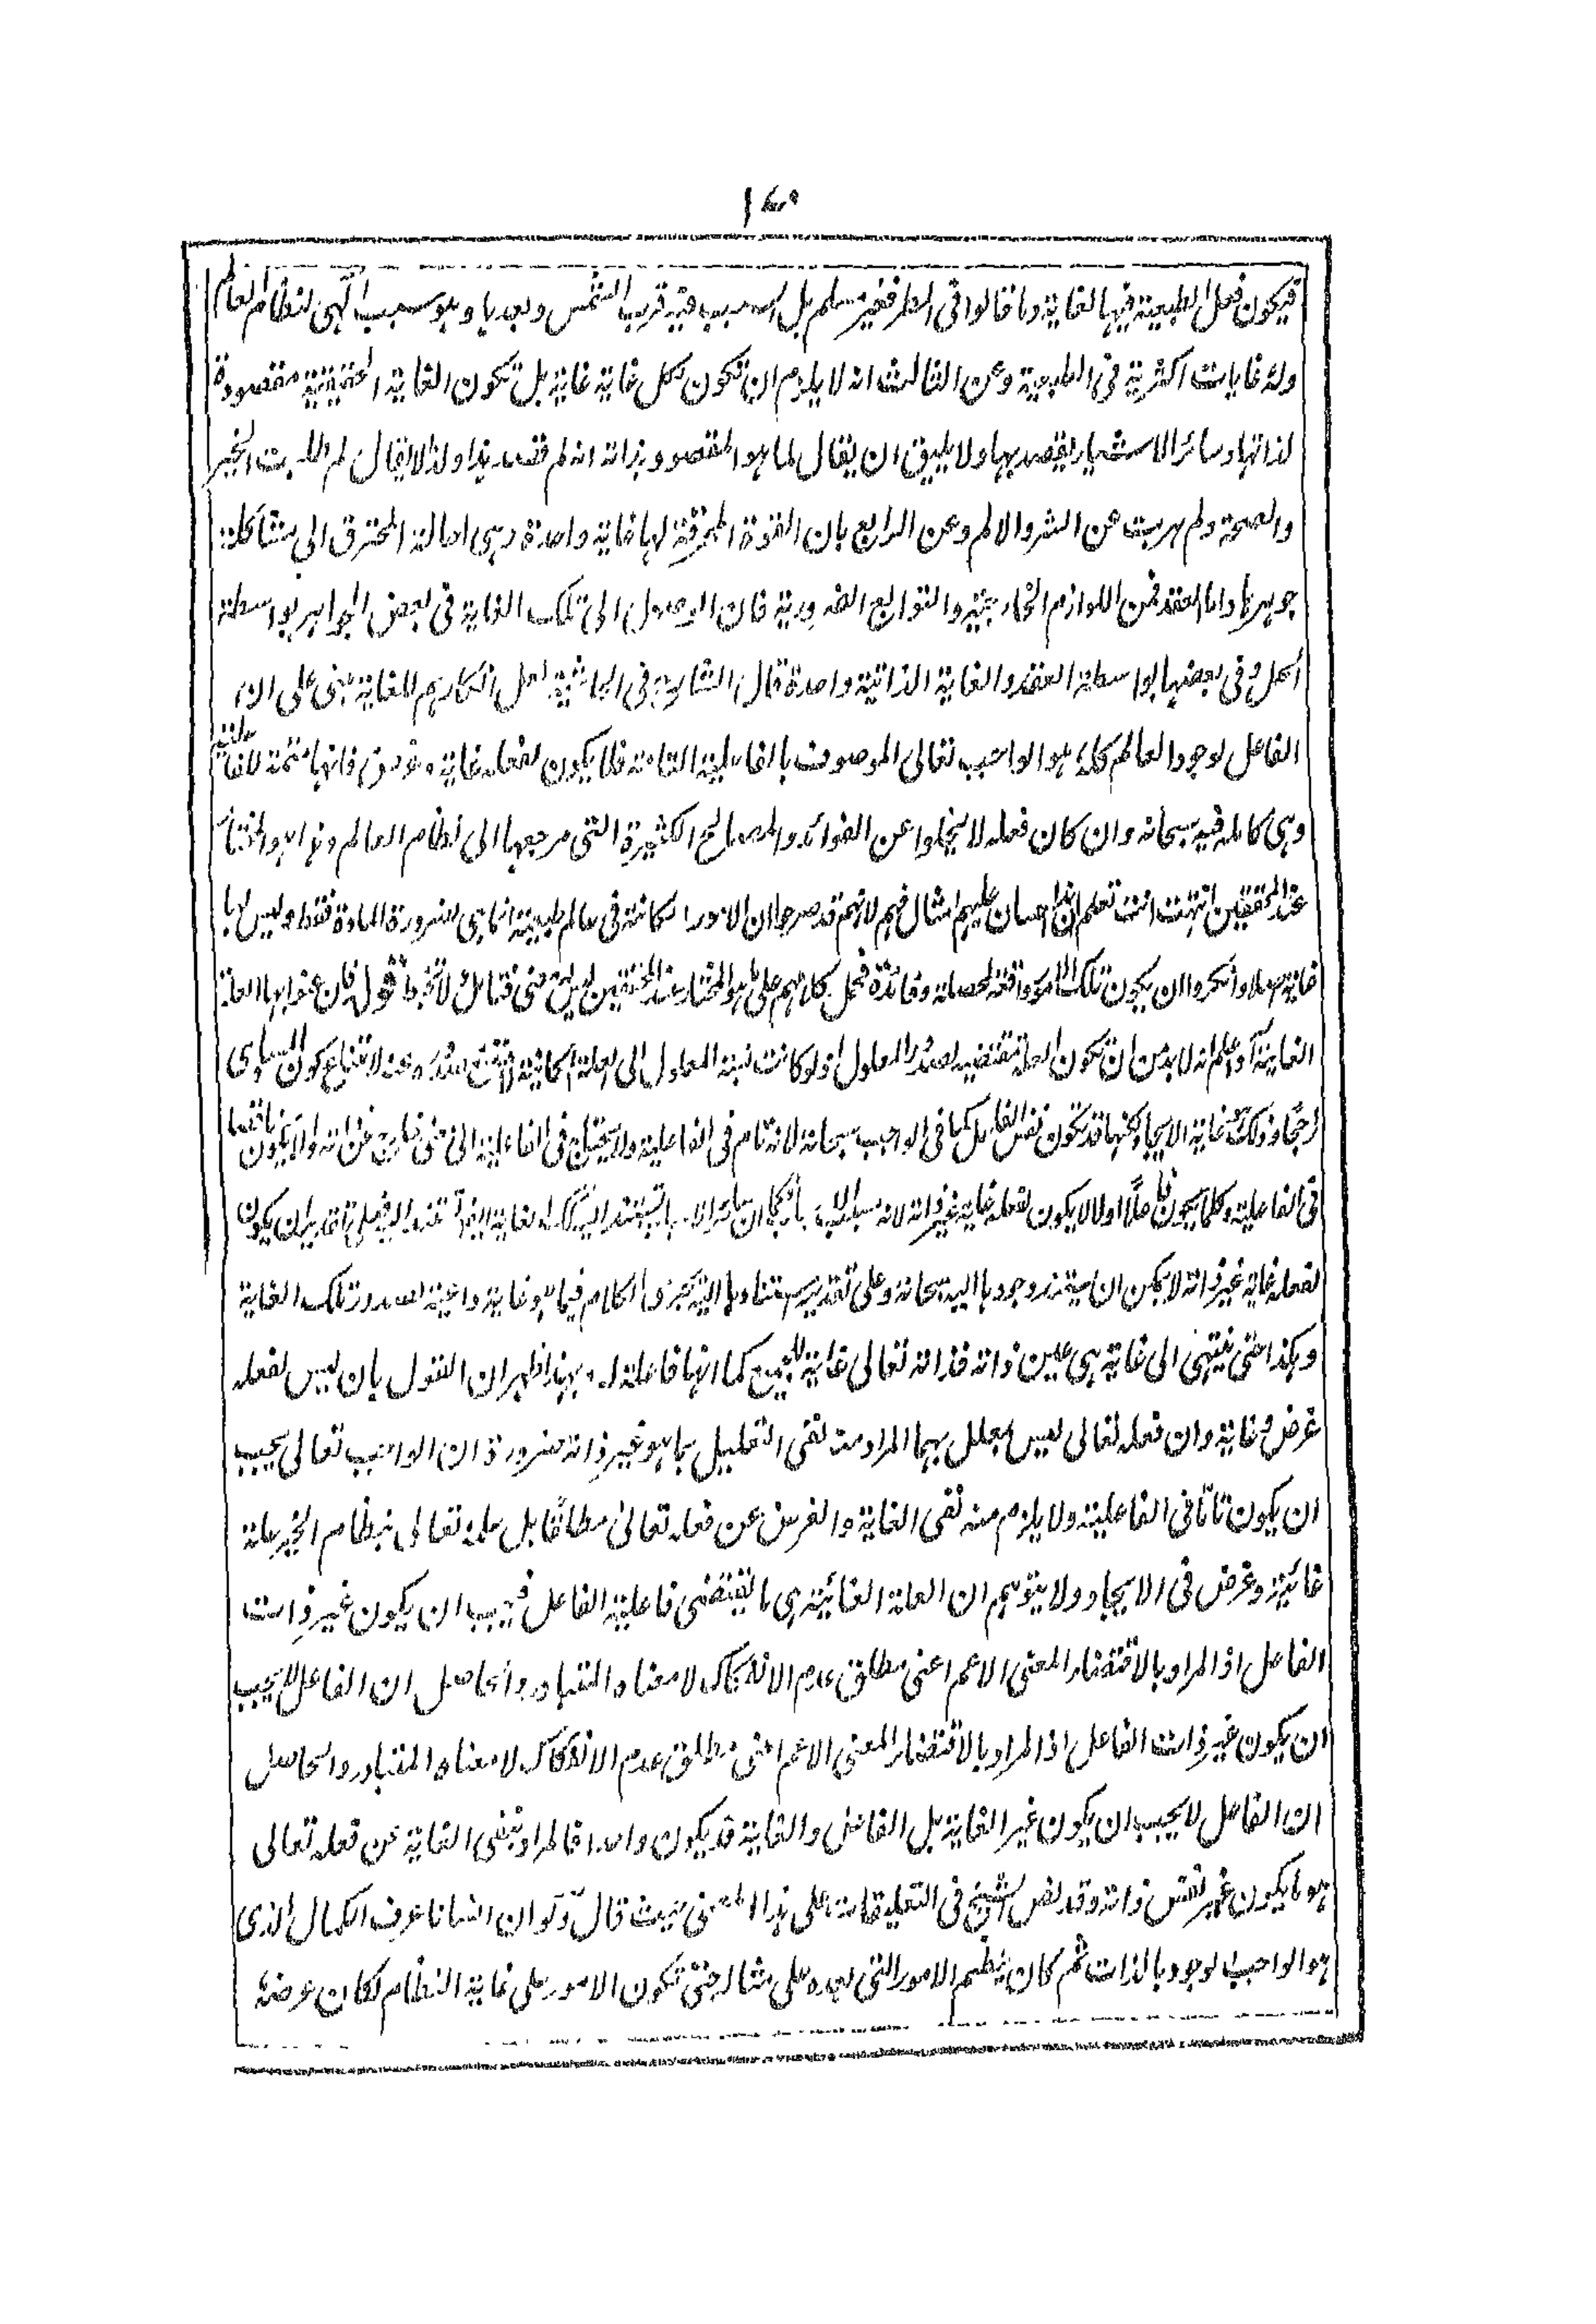 ١٤٠
فيكون فعل الطبيعية فيها لغاية وما قالوا فى المطر فغير مسلم بل السبب فيه قرب الشمس وبعدها وهو سبب الٓهى لنظام العالم
وله غايات اكثرية فى الطبيعية وعن الثالث انه لا يلزم ان تكون لكل غاية غاية بل تكون الغاية الحقيقية مقصودة
لذاتها وسائر الاشياء يقصد بها ولا يليق ان يقال لما هو المقصود بذاته انه لم قصد هذا ولذا لا يقال لم طلبت الخير
والصحة ولم هربت عن الشر والالم وعن الرابع بان القوة المحرقة لها غاية واحدة وهى احالة المحترق الى مشاكلة
جوهرها واما العقد فمن اللوازم الخارجية والتوابع الضرورية فان الوصول الى تلك الغاية فى بعض الجواهر بواسطة
الحل وفى بعضها بواسطة العقد والغاية الذاتية واحدة قال الشارح فى الحاشية لعل انكارهم للغاية مبنى على ان
الفاعل لوجود العالم كله هو الواجب تعالى الموصوف بالفاعلية التامة فلا يكون لفعله غاية وغرض فانها متممة للفاعلية
وهى كاملة فيه سبحانه وان كان فعله لا يخلوا عن الفوائد والمصالح الكثيرة التى مرجعها الى نظام العالم وهذا هو المختار
عند المحققين انتهت انت تعلم ان هذا احسان عليهم امثال فيهم لانهم قد صرحوا ان الامور الكائنة فى عالم الطبيعية انما هى لضرورة المادة فقط وليس لها
غاية اصلا وانكروا ان يكون تلك الامور واقعة لمصلحة وفائدة فحمل كلامهم على ما هو المختار عند المحققين ليس بشئ فتامل ولا تخبط قوله فان عنوا بها العلة
الغاية آه اعلم انه لا بد من ان تكون العلة مقتضية لصدور المعلول اذ لو كانت نسبة المعلول الى العلة امكانية لامتنع صدوره عنه لامتناع كون المساوى
راجحا وذلك هو غاية الايجاد لكنها قد تكون نفس الفاعل كما فى الواجب سبحانه لانه تام فى الفاعلية ولا يحتاج فى الفاعلية الى شئ خارج عن ذاته والا يكون ناقصا
فى الفاعلية وكلما يكون فاعلا اولا لا يكون لفعله غاية غير ذاته لانه سبب الاسباب فكما ان سائر الاسباب تستند اليه كذلك الغاية ايضا تستند اليه فعلى تقدير ان يكون
لفعله غاية غير ذاته لا يمكن ان يستند وجودها اليه سبحانه وعلى تقدير استنادها اليه نجرى الكلام فيما هو غاية داعية لصدور تلك الغاية
وهكذا حتى ينتهى الى غاية هى عين ذاته فذاته تعالى غاية للجميع كما انها فاعلة له وبهذا ظهر ان القول بان ليس لفعله
غرض وغاية وان فعله تعالى ليس بمعلل بهما المراد منه نفى التعليل بما هو غير ذاته ضرورة ان الواجب تعالى يجب
ان يكون تاما فى الفاعلية ولا يلزم منه نفى الغاية والغرض عن فعله تعالى مطلقا بل علمه تعالى بنظام الخير علة
غائية وغرض فى الايجاد ولا يتوهم ان العلة الغائية هى ما يقتضى فاعلية الفاعل فيجب ان يكون غير ذات
الفاعل اذ المراد بالاقتضاء المعنى الاعم اعنى مطلق عدم الانفكاك لا معناه المتبادر والحاصل ان الفاعل لا يجب
ان يكون غير ذات الفاعل اذ المراد بالاقتضاء المعنى الاعم اعنى مطلق عدم الانفكاك لا معناه المتبادر والحاصل
ان الفاعل لا يجب ان يكون غير الغاية بل الفاعل والغاية قد يكون واحدا فالمراد بنفى الغاية عن فعله تعالى
هو ما يكون غير نفس ذاته وقد نص الشيخ فى التعليقات على هذا المعنى حيث قال ولو ان انسانا عرف الكمال الذى
هو الواجب الوجود بالذات ثم كان ينظم الامور التى بعده على مثاله حتى تكون الامور على غاية النظام لكان غرضه